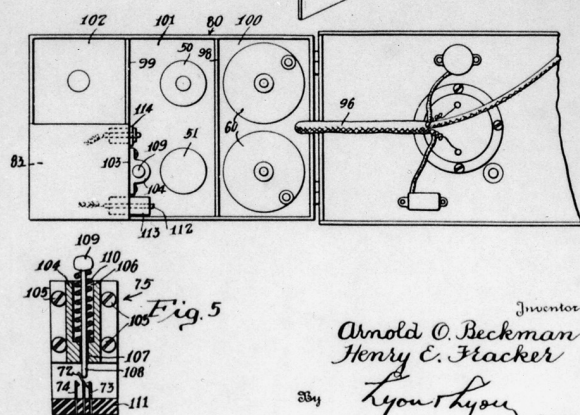 102 101 80 100
50 98
99
114
60 96
83 103 109 51
104
113 112
109
104 110 106
105 75
105 Fig. 5
107
72 108
74 73
111
Inventor
Arnold O. Beckman
Henry E. Fracker
By Lyon & Lyon